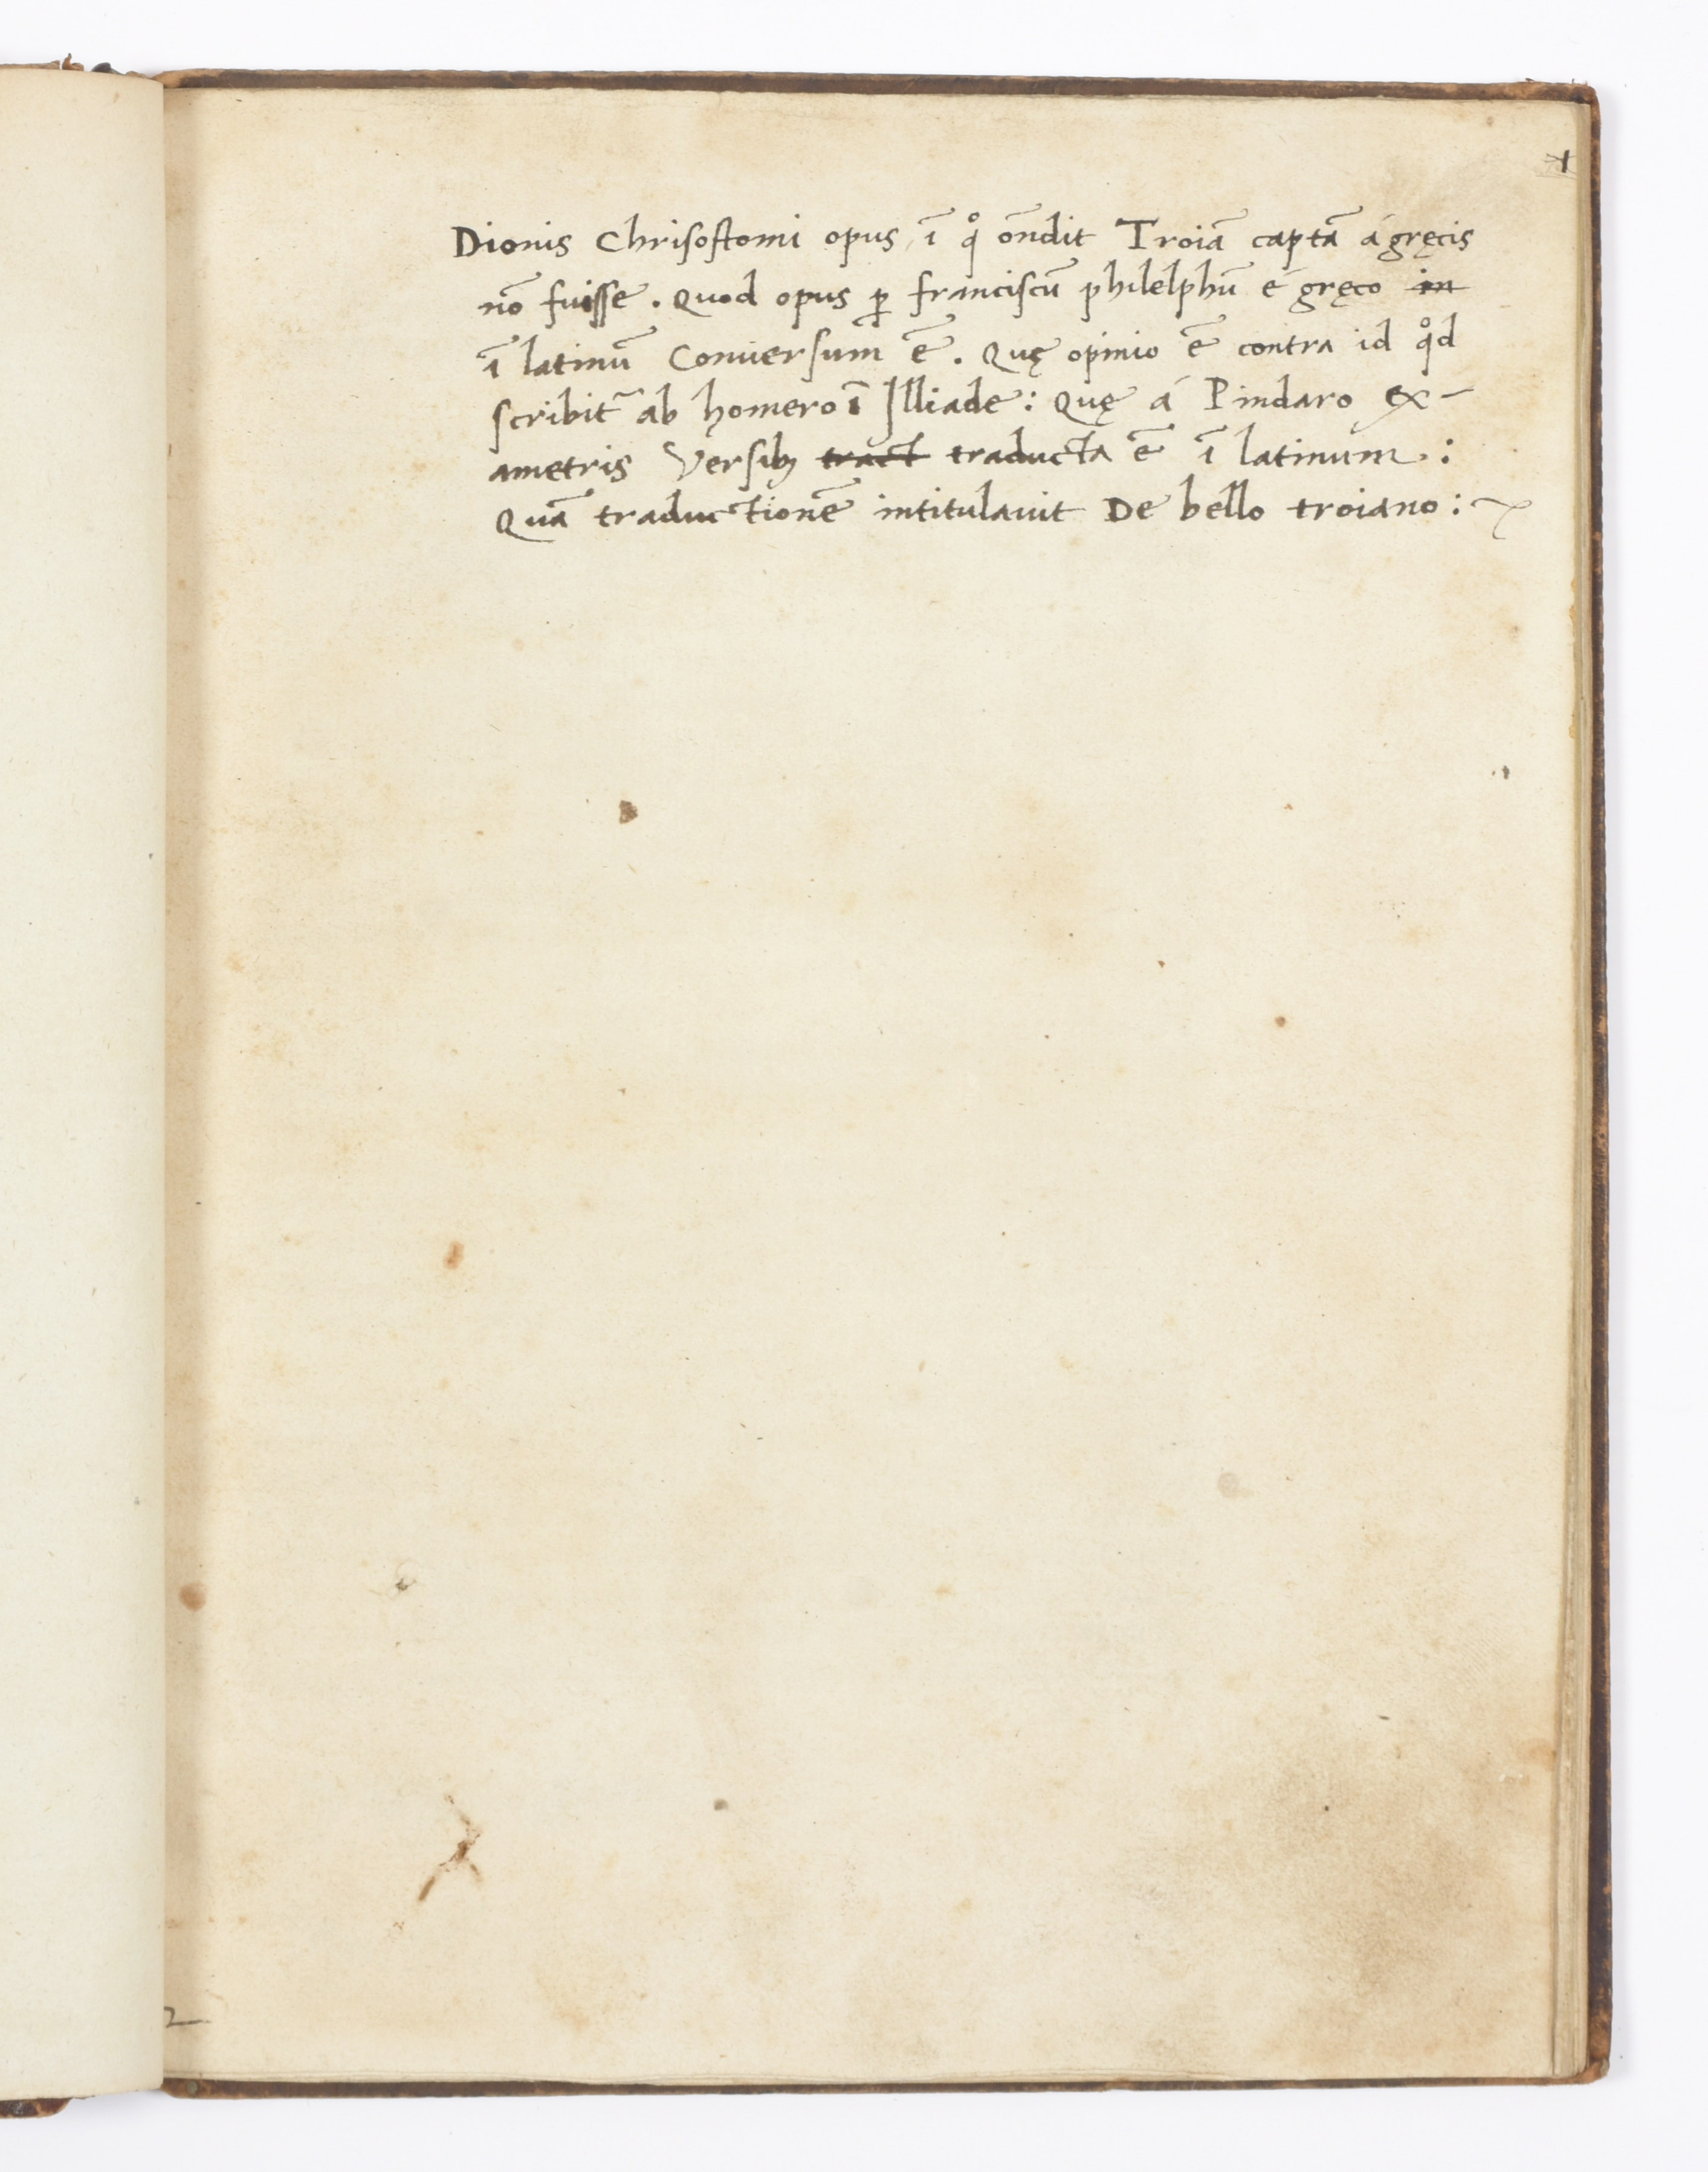 1
Dionis Chrisostomi opus, ī qͦ on̄dit Troiā captā á gręcis
nō fuisse. Quod opus ꝑ franciscū philelphū é gręco in
ī latinū Conuersum ē. Quę opinio ē contra id qͦd
scribit᷑ ab homero ī Illiade: Quę á Pindaro ex-
ametris Versibꝫ tract traducta ē ī latinum:
Quā traductionē intitulauit De bello troiano: